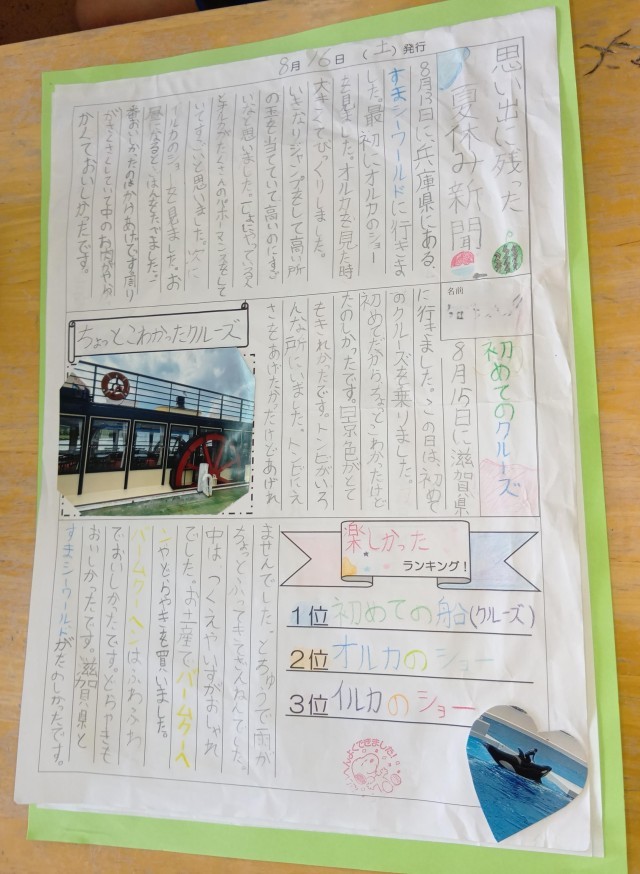 思い出に残った
夏休み新聞
8月16日（土）発行
8月15日に兵庫県にある、
すまシーワールドに行きま
した。最初にオルカのショー
を見ました。オルカを見た時
大きくてびっくりしました。
いきなりジャンプをして高い所
の玉を当てていて高いのにすご
いなと思いました。
イルカがたくさんのパホーマンスをして
いてすごいと思いました。次に
イルカのショーを見ました。お
からあげです。周り
がさくさくしていて中のお肉がやわら
かくておいしかったです。
名前
初めてのクルーズ
8月15日に滋賀県
に行きました。この日は、初めて
のクルーズを乗りました。
初めてだからちょっとこわかったけど
たのしかったです。景色がとて
もきれいだったです。トンビがいろ
んな所にいました。トンビにえ
さをあげたかったけどあげれ
ちょっとこわかったクルーズ
ませんでした。とちゅうで雨が
ちょっとふってきてざんねんでした。
中は つくえやいすがおしゃれ
でした。お土産でバームクーヘ
ンやどらやきを買いました。
バームクーヘンは、ふわふわ
でおいしかったです。どらやきも
おいしかったです。滋賀県と
すまシーワールドがたのしかったです。
楽しかった
ランキング！
1位 初めての船(クルーズ)
2位 オルカのショー
3位 イルカのショー